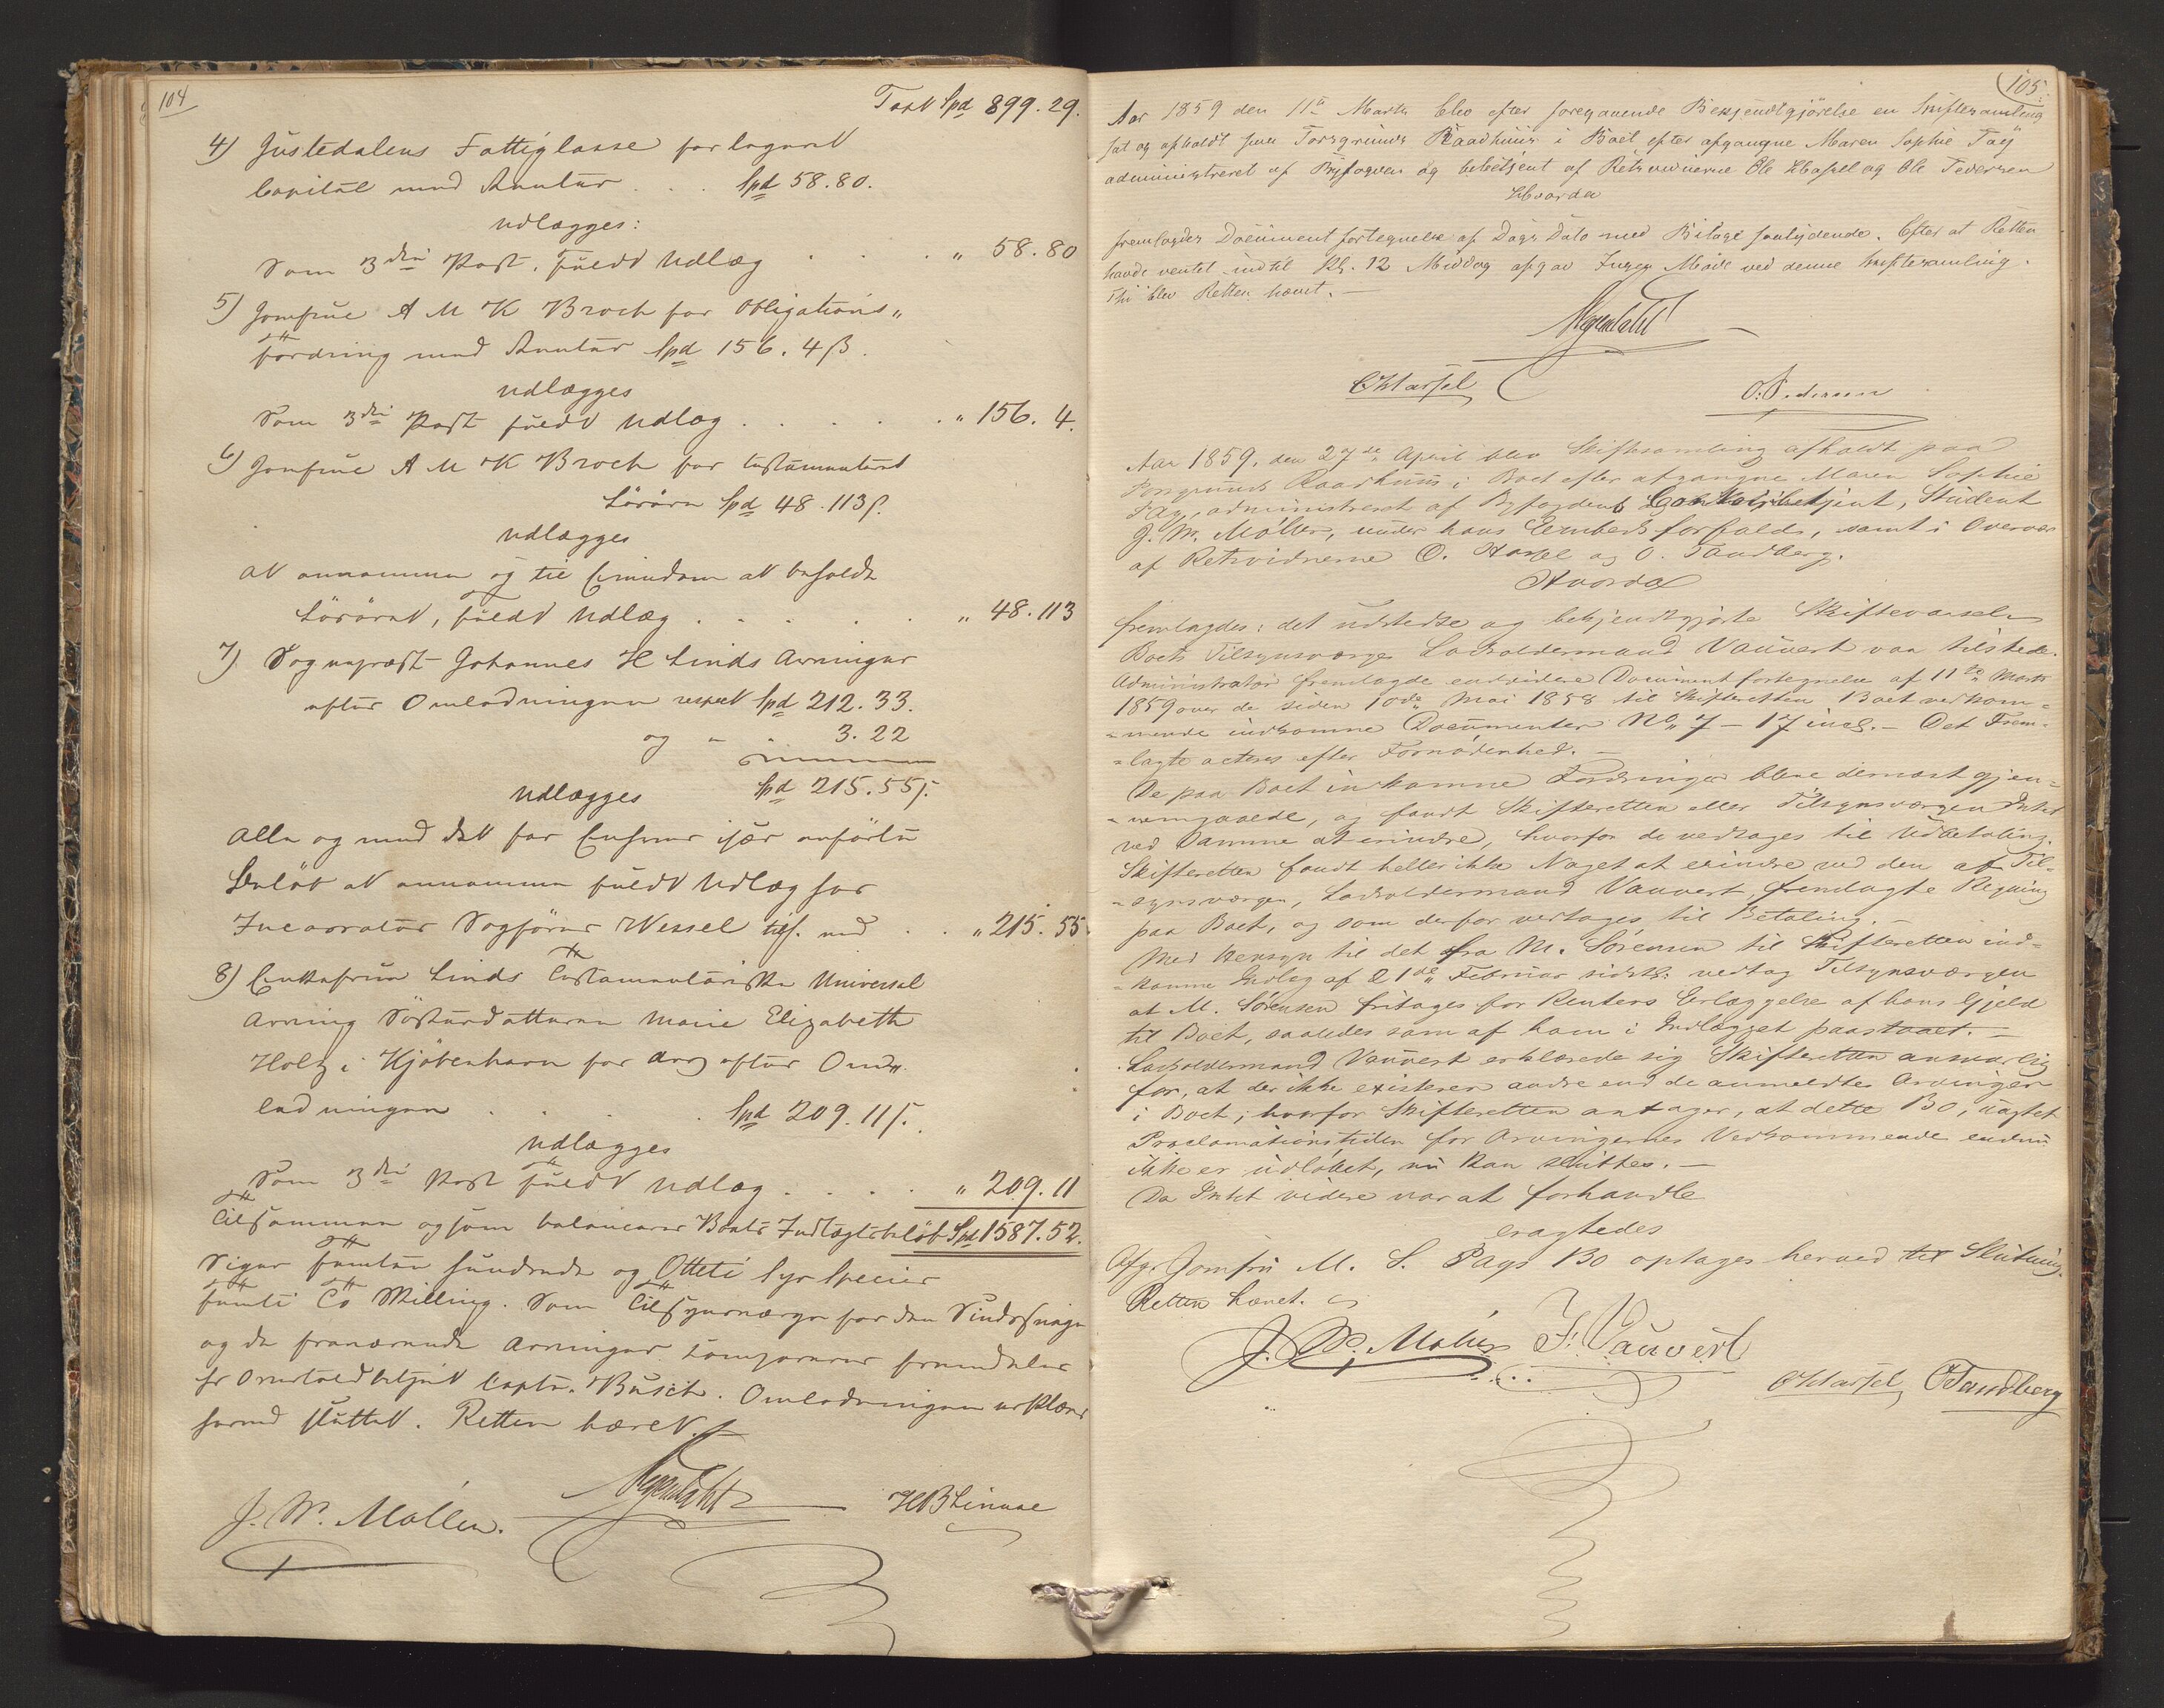 104
Tspt Spd 899.29.
4) Justedalens Fattigkasse for legeret
Capital med Renter . . . Spd 58.80.
udlægges:
Som 3die Post, fuldt Udlæg . . . " 58.80
5) Jomfrue A M K Broch for Obligations"
fordring med Renter Spd 156.4 ß.
udlægges
Som 3die Post fuldt Udlæg . . . . . " 156. 4.
6) Jomfrue A M K Broch for testamenteret
Spd 48.113 ß.
udlægges
at annamme og til Eiendom at beholde
fuldt Udlæg . . . . . " 48.113
7) Sognepræst Johannes H Linds Arvinger
efter Omladningen respect Spd 212.33.
og " " 3.22
Spd 215.55 ß.
udlægges
Alle og med det for Enhver især anførte
Beløb at annamme fuldt Udlæg hos
Incassator Sagfører Wessel tils. med . . " 215.55
8) Enkefrue Linds testamentariske Universal
Arving Søsterdatteren Marie Elizabeth
Holtz i Kjøbenhavn for Arv efter Om"
ladningen . . . . Spd 209.11 ß.
udlægges
Som 3die Post fuldt Udlæg . . . . " 209.11
Tilsammen og som balancerer Boets Indtægtsbeløb Spd 1587.52.
Siger femten hundrede og Otteti Syv Species
femti To Skilling. Som Tilsynsværge for den Sindssvage
og de fraværende Arvinger comparerer fremdeles
Hr Overtoldbetjent Captn. Busch. Omladningen erklæres
herved sluttet. Retten hævet.
J. W. Møller.
HBLinaae
105
Aar 1859 den 11te Marts blev efter foregaaende Bekjendtgjørelse en Skiftesamling
sat og afholdt paa Porsgrunds Raadhuus i Boet efter afgangne Maren Sophie Pay
administreret af Byfogden og betjent af Retsvidnerne Ole Hassel og Ole Pedersen
Hvorda
fremlagdes Documentfortegnelse af Dags Dato med Bilage saalydende. Efter at Retten
havde ventet indtil Kl. 12 Middag afgav Ingen Møde ved denne Skiftesamling.
Thi blev Retten hævet. —
OHassel
O. Pedersen
Aar 1859, den 27de April blev Skiftesamling afholdt paa
Porsgrunds Raadhuus i Boet efter afgangne Maren Sophie
Pay, administreret af Byfogdens Contoirbetjent, Student
J. W. Møller, under hans Embeds forfald, samt i Overvær
af Retsvidnerne O. Hassel og O. Tandberg.
Hvorda
fremlagdes: det udstedte og bekjendtgjorte Skiftevarsel
Boets Tilsynsværge Lodsoldermand Vauvert var tilstede.
Administrator fremlagde endvidere Documentfortegnelse af 11te Marts
1859 over de siden 10de Mai 1858 til Skifteretten Boet vedkom-
-mende indkomne Documenter No 7 – 17 incl. – Det Frem-
-lagte acteres efter Fornødenhed. —
De paa Boet indkomne Fordringer bleve dernæst gjen-
-nemgaaede, og fandt Skifteretten eller Tilsynsværgen Intet
ved Samme at erindre, hvorfor de vedtages til Udbetaling.
Skifteretten fandt heller ikke Noget at erindre ved den af Til-
-synsværgen, Lodsoldermand Vauvert, fremlagte Regning
paa Boet, og som derfor vedtages til Betaling. —
Med Hensyn til det fra M. Sørensen til Skifteretten ind-
-komne Indlæg af 21de Februar sidstl. vedtog Tilsynsværgen
at M. Sørensen fritages for Renters Erlæggelse af hans Gjeld
til Boet, saaledes som af ham i Indlægget paastaaet. —
Lodsoldermand Vauvert erklærede sig Skifteretten ansvarlig
for, at der ikke existerer andre end de anmeldte Arvinger
i Boet; hvorfor Skifteretten antager, at dette Bo, uagtet
Proclamationstiden for Arvingernes Vedkommende endnu
ikke er udløbet, nu kan sluttes. —
Da Intet videre var at forhandle
eragtedes
Afg. Jomfru M. S. Pays Bo optages herved til Slutning.
Retten hævet.
J. W. Møller F. Vauvert
OHassel OTandberg